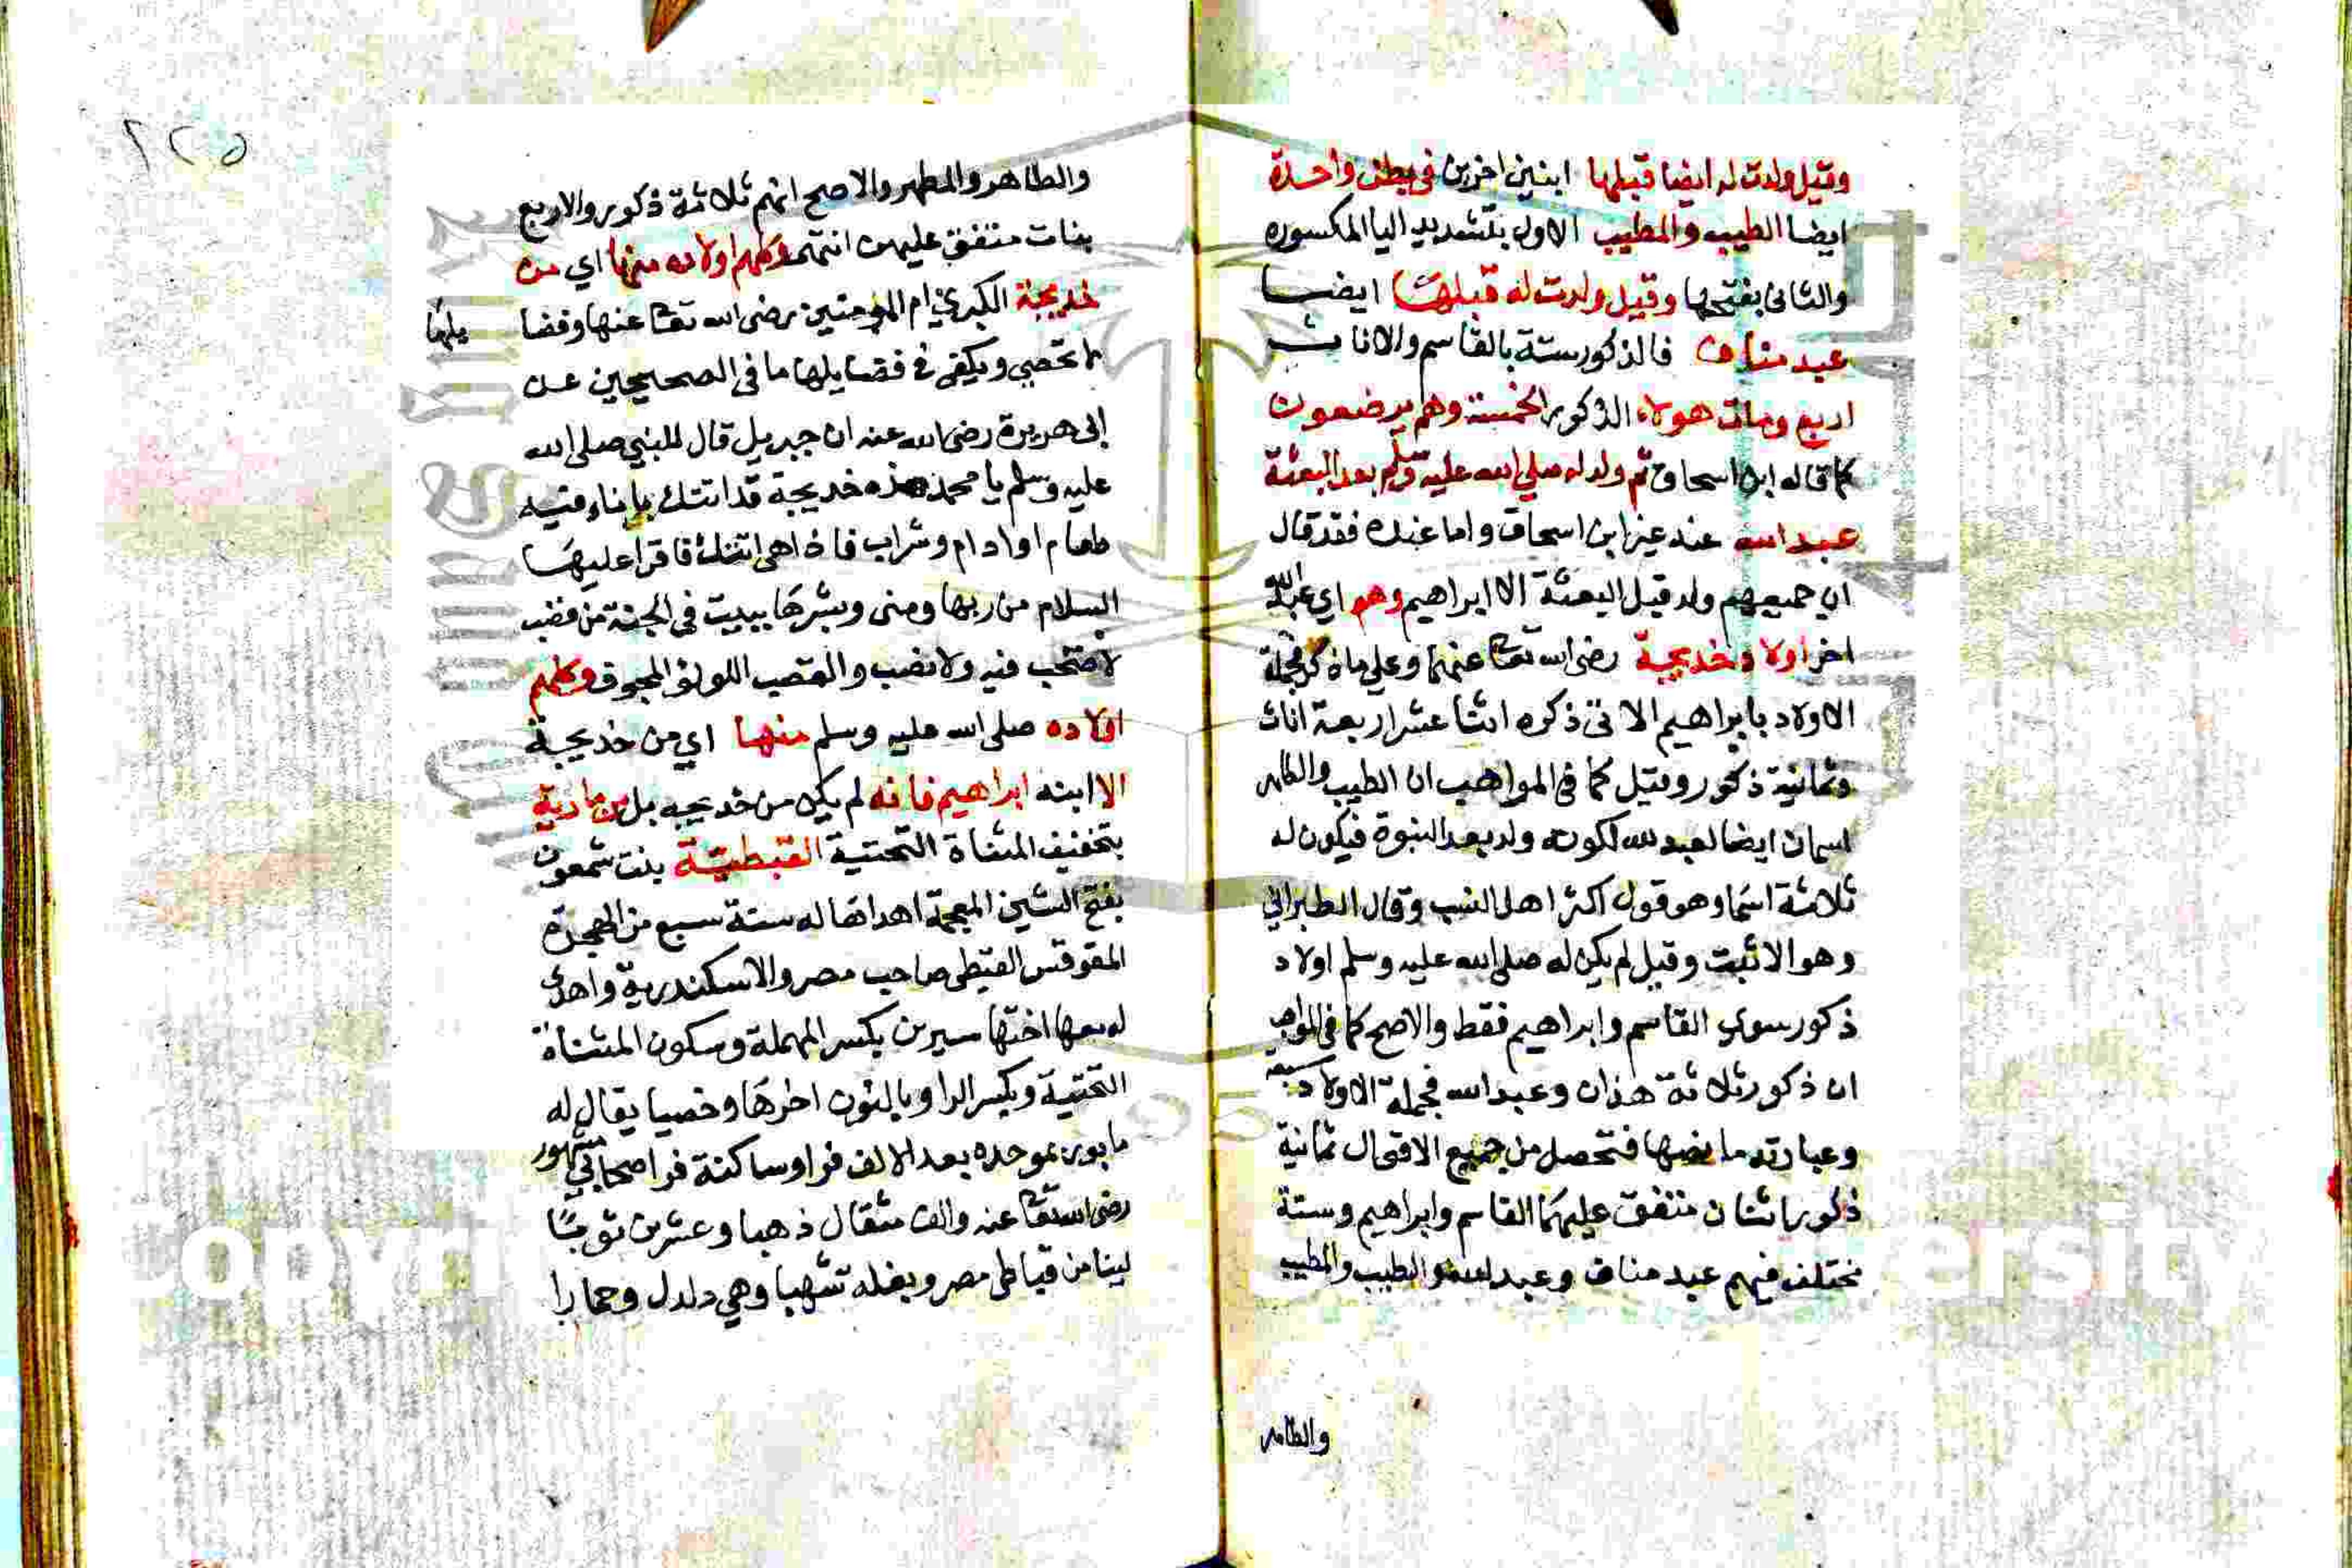 وقيل ولدت له ايضا قبلها ابنين اخرين في بطن واحدة
ايضا الطيب والمطيب الاول بتشديد اليا المكسوره
والثاني بفتحها وقيل ولدت له قبلها ايضا
عبد مناف فالذكور ستة بالقاسم والاناث
اربع ومات هولاء الذكور الخمسة وهم يرضعون
كما قاله ابن اسحاق ثم ولد له صلي الله عليه وسلم بعد البعثة
عبد الله عند غير ابن اسحاق واما عنده فقد قال
ان جميعهم ولد قبل البعثة الا ابراهيم وهو اي عبد الله
اخر اولاد خديجة رضي الله تعا عنهما وعلي ما ذكر فجملة
الاولاد بابراهيم الاتي ذكره اثنا عشر اربعة اناث
وثمانية ذكور وقيل كما في المواهب ان الطيب والطاهر
اسمان ايضا لعبد الله لكونه ولد بعد النبوة فيكون له
ثلاثة اسما وهو قول اكثر اهل النسب وقال الطبراني
وهو الاثبت وقيل لم يكن له صلي الله عليه وسلم اولاد
ذكور سوي القاسم وابراهيم فقط والاصح كما في المواهب
ان ذكور ثلاثة هذان وعبد الله فجملة الاولاد سبعة
وعبارته ما نصها فتحصل من جميع الاقوال ثمانية
ذكور اثنان متفق عليهما القاسم وابراهيم وستة
مختلف فيهم عبد مناف وعبد الله والطيب والمطيب
والطاهر
٢٢٥
والطاهر والمطهر والاصح انهم ثلاثة ذكور والاربع
بنات متفق عليهن انتهي وكلهم اولاده منها اي من
خديجة الكبري ام المومنين رضي الله تعا عنها وفضا
يلها
لا تحصي ويكفي في فضايلها ما في الصحيحين عن
ابي هريرة رضي الله عنه ان جبريل قال للنبي صلي الله
عليه وسلم يا محمد هذه خديجة قد اتتك باناء فيه
طعام او ادام وشراب فاذا هي اتتك فاقرا عليها
السلام من ربها ومني وبشرها ببيت في الجنة من قصب
لا صخب فيه ولا نصب والقصب اللولؤ المجوف وكلهم
اولاده صلي الله عليه وسلم منها اي من خديجة
الا ابنه ابراهيم فانه لم يكن من خديجه بل من مارية
بتخفيف المثناة التحتية القبطية بنت شمعون
بفتح الشين المعجمة اهداها له سنة سبع من الهجرة
المقوقس القبطي صاحب مصر والاسكندرية واهدي
له معها اختها سيرين بكسر المهملة وسكون المثناة
التحتية وبكسر الرا وبالنون اخرها وخصيا يقال له
مابور بموحده بعد الالف فواو ساكنة فرا صحابي مشهور
رضي الله تعا عنه والف مثقال ذهبا وعشرين ثوبا
لينا من قباطي مصر وبغله شهبا وهي دلدل وحمارا